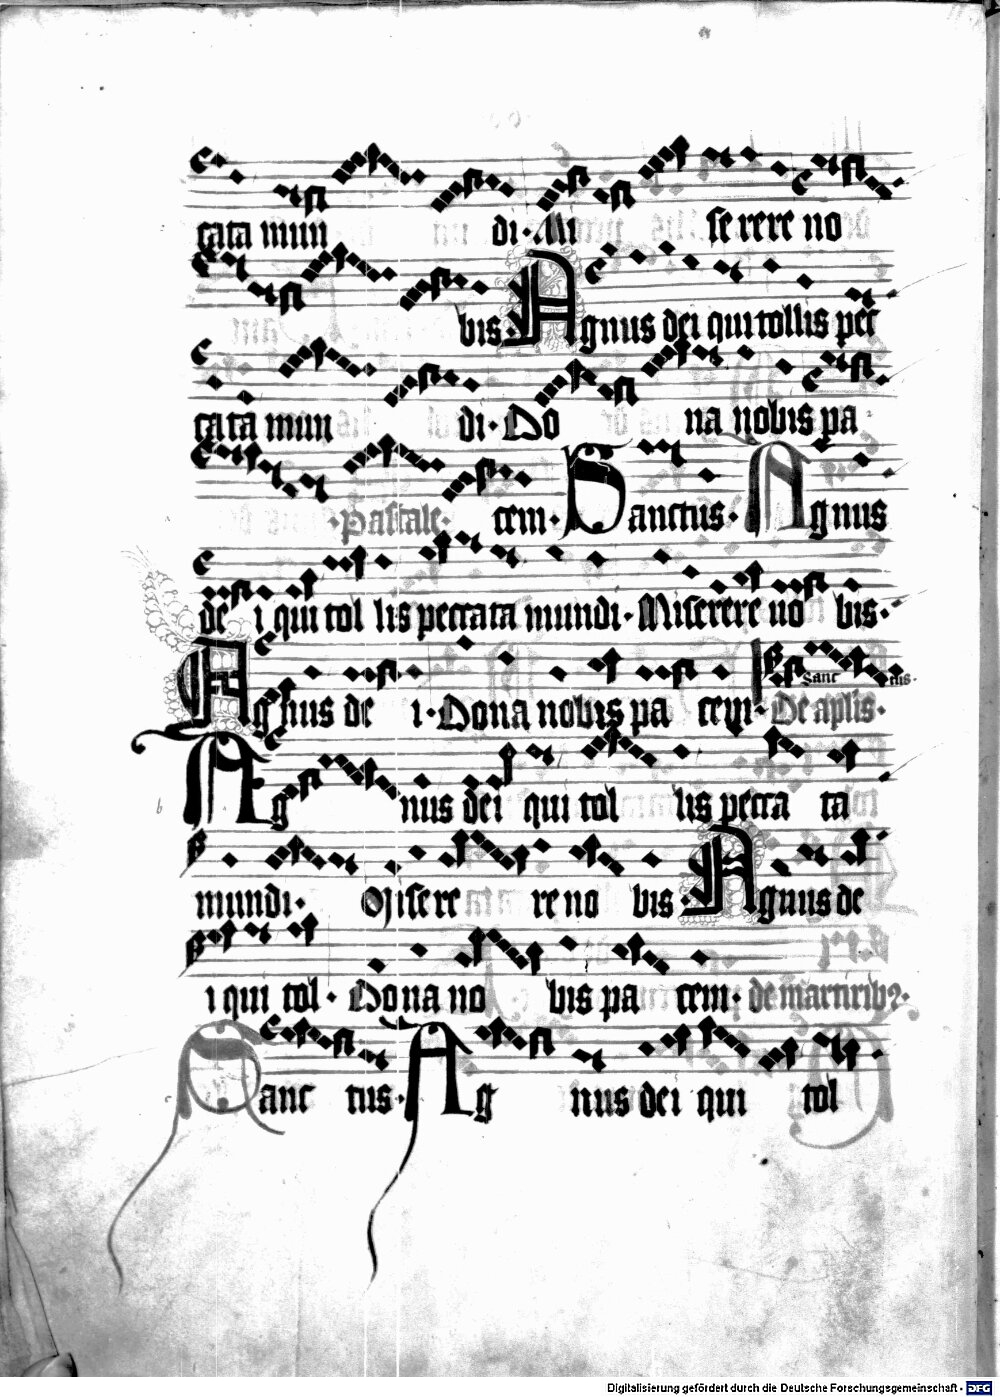 cata mun di · Mi se rere no
bis · Agnus dei qui tollis pec
cata mun di · Do na nobis pa
· Paschale · cem · Sanctus · Agnus
de i qui tol lis peccata mundi · Miserere no bis ·
Sanc tus ·
Agnus de i · Dona nobis pa cem · De aplis ·
Ag nus dei qui tol lis pecca ta
mundi · Misere re no bis · Agnus de
i qui tol · Dona no bis pa cem · de martirib⁹ ·
Sanc tus · Ag nus dei qui tol
Digitalisierung gefördert durch die Deutsche Forschungsgemeinschaft - DFG